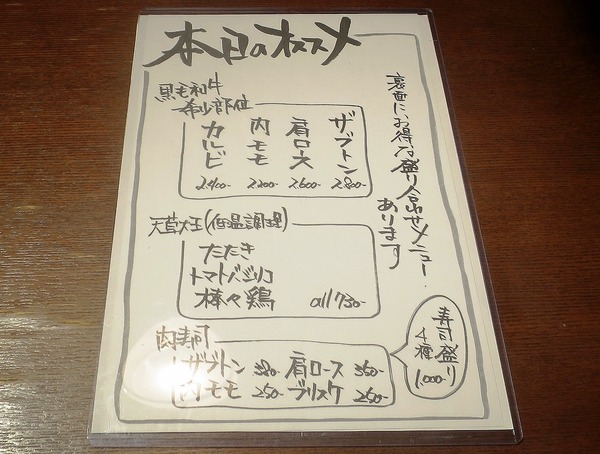 本日のオススメ
裏面に、お得な盛り合わせメニュー
あります
黒毛和牛
希少部位
ザブトン 2.800-
肩ロース 2.600-
内モモ 2.200-
カルビ 2.400-
天草大王(低温調理)
たたき
トマトバジリコ
棒々鶏 all 730-
肉寿司
ザブトン 380- 肩ロース 360-
内モモ 250- ブリスケ 260-
寿司盛り
4種
1.000-